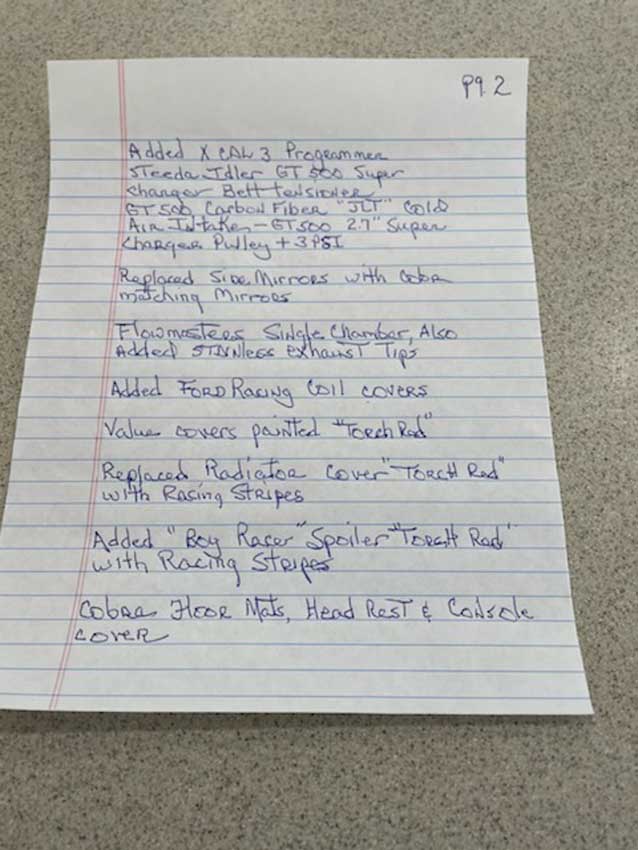 Pg. 2
Added X CAL 3 Programmer
Steeda Idler GT 500 Super
Charger Belt tensioner
GT500 Carbon Fiber "JLT" Cold
Air Intake - GT500 2.7" Super
Charger Pulley + 3 PSI
Replaced Side Mirrors with Cobra
matching Mirrors
Flowmasters Single Chamber, Also
Added STAINless exhaust Tips
Added FORD Racing Coil covers
Value covers painted "Torch Red"
Replaced Radiator cover "TORCH Red"
with Racing Stripes
Added "Boy Racer" Spoiler "TORCH Red"
with Racing Stripes
Cobra Floor Mats, Head Rest & Console
cover